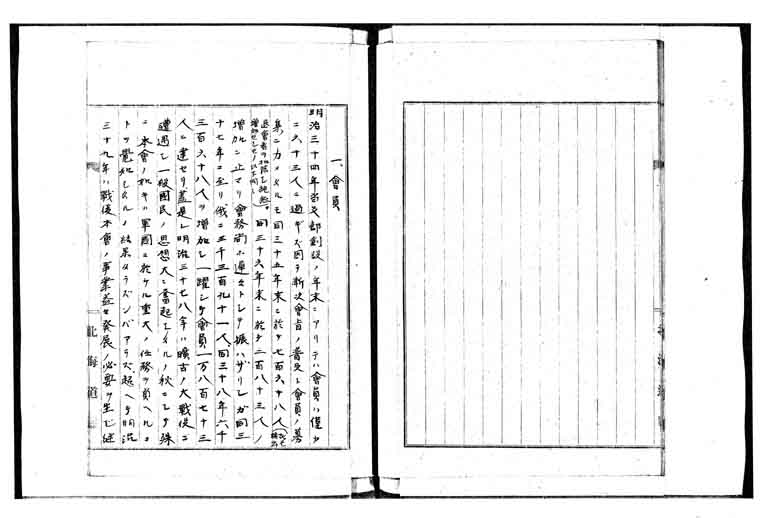 一、會員
明治三十四年當支部創設ノ年末ニアリテハ會員ハ僅少
ニ六十三人ニ過ギズ因テ漸次會旨ノ普及ト會員ノ募
集ニカメタルモ同三十五年末ニ於テ七百六十八人
増加ニ止マリ會務尚ホ遅々トシテ振ハザリシガ同三
十七年ニ至リ俄ニ三千三百九十一人、同三十八年六千
三百六十八人ヲ増加シ一躍シテ會員一万八百七十三
人ニ達セリ蓋是レ明治三十七八年ハ曠古ノ大戰役ニ
遭遇シ一般國民ノ思想大ニ奮起シタルノ秋ニシテ殊
ニ本會ノ如キハ軍國ニ於ケル重大ノ任務ヲ負ヘルコ
トヲ覺知シタルノ結果タラズンバアラズ越ヘテ明治
三十九年ハ戰後本會ノ事業益々發展ノ必要ヲ生じ
北海道